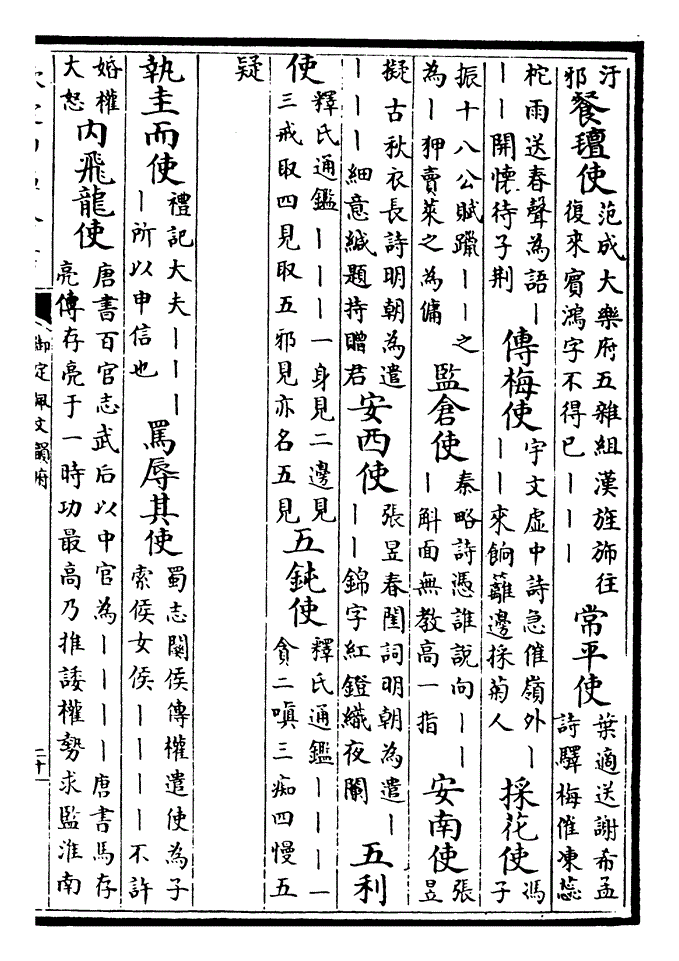 汙邪餐氊使范成大樂府五雜組漢旌斾往復來賓鴻字不得已丨丨丨常平使葉適送謝希孟詩驛梅催凍蕊
柁雨送春聲為語丨丨丨開懷待子荆傳梅使宇文虚中詩急催嶺外丨丨丨來餉籬邊採菊人採花使馮子
振十八公賦躐丨丨之為丨狎賣菜之為傭監倉使秦略詩憑誰說向丨丨丨斛面無教高一指安南使張昱
擬古秋衣長詩明朝為遣丨丨丨細意緘題持贈君安西使張昱春閨詞明朝為遣丨丨丨錦字紅鐙織夜闌五利
使釋氏通鑑丨丨丨一身見二邊見三戒取四見取五邪見亦名五見五鈍使釋氏通鑑丨丨丨一貪二嗔三痴四慢五
疑
執圭而使禮記大夫丨丨丨丨所以申信也罵辱其使蜀志關侯傳權遣使為子索侯女侯丨丨丨丨不許
婚權大怒內飛龍使唐書百官志武后以中官為丨丨丨丨唐書馬存亮傳存亮于一時功最高乃推諉權勢求監淮南
御定佩文韻府
二十